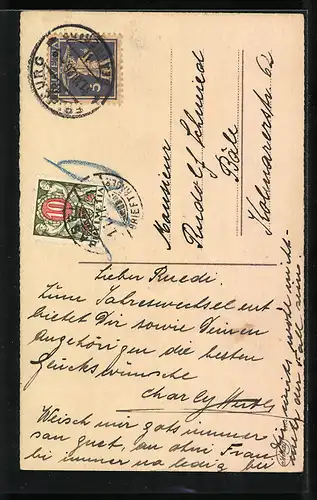 FRIBOURG
5
10
BRIEFTRÄGER
Monsieur
Rudolf Schmied
Bâle
Kolmarerstr. 62
Lieber Ruedi.
Zum Jahreswechsel ent-
bietet Dir sowie Deinen
Angehörigen die besten
Glückswünsche
Charly
Weisch mir gots immer
san guet, au ohni Frau
bi immer no ledig
wohl nicht
der Fall sein.